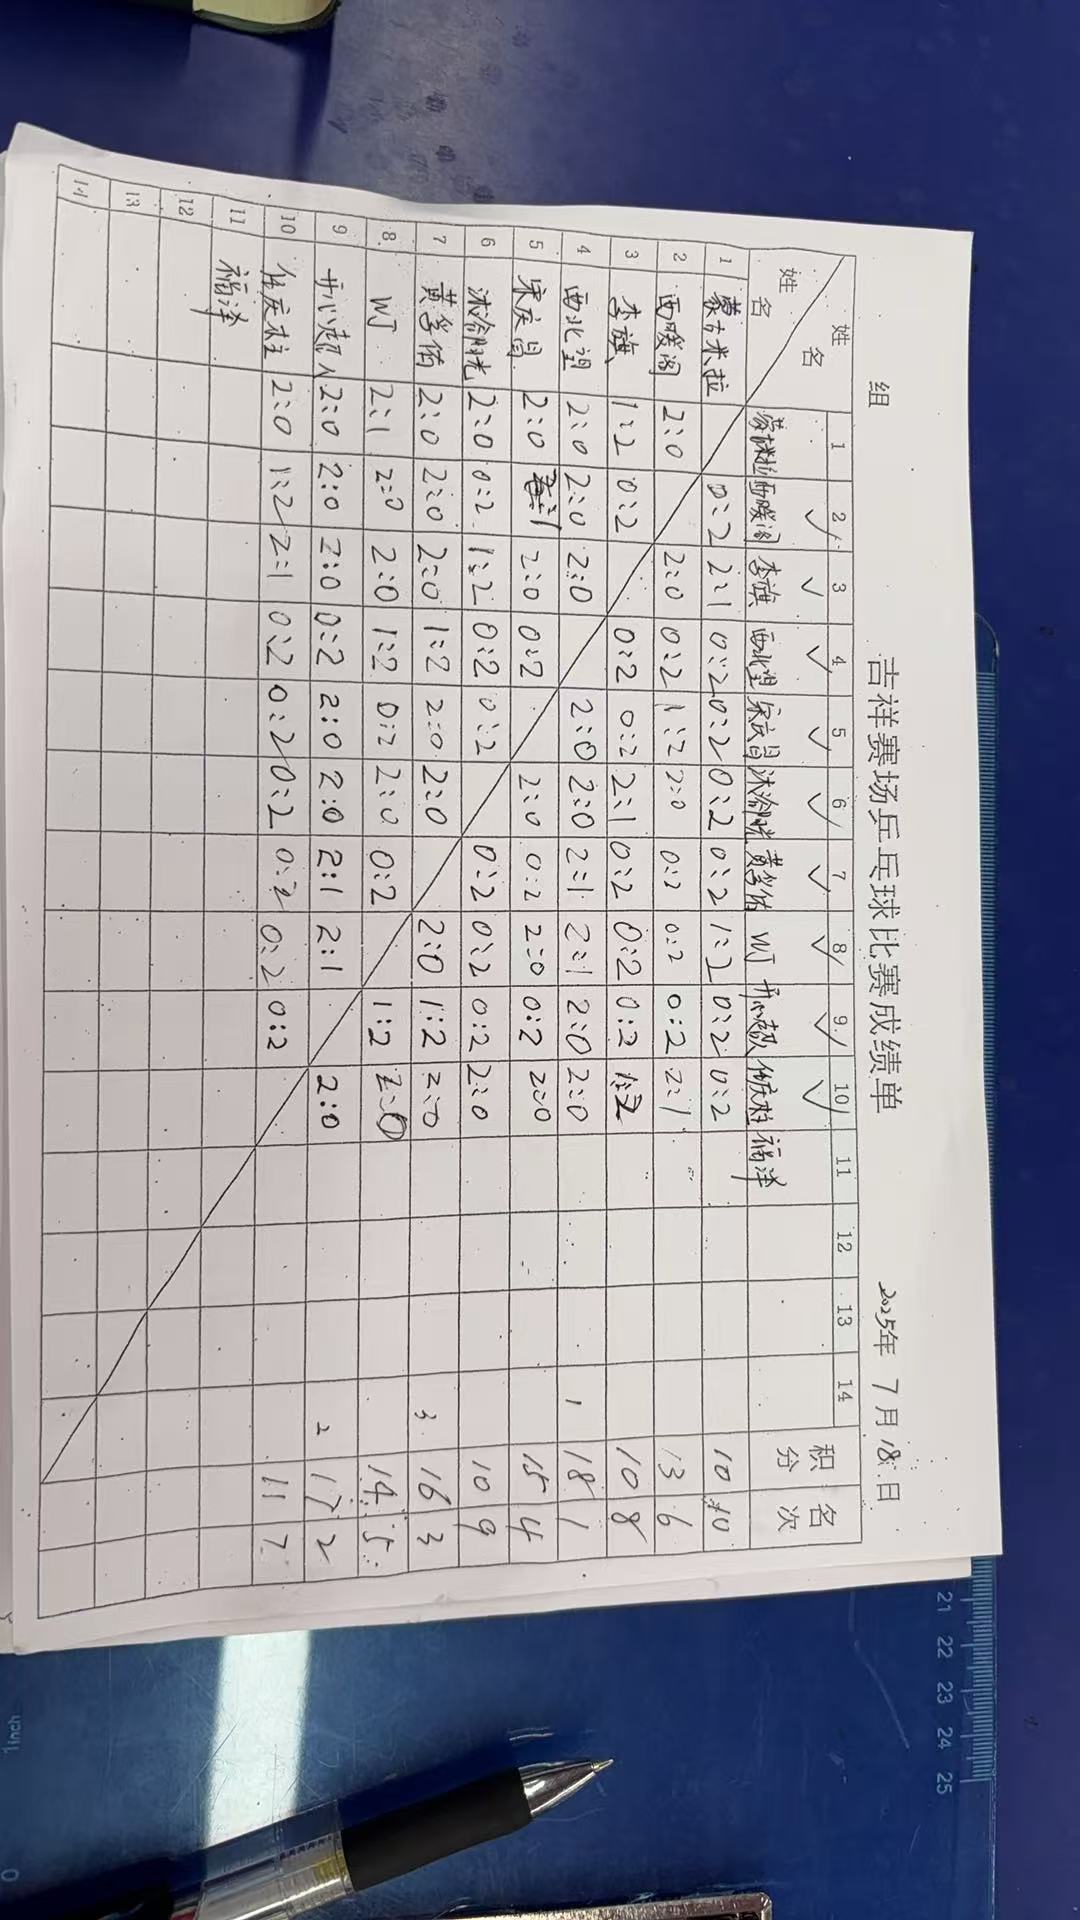 吉祥赛场乒乓球比赛成绩单
组 2025年 7月18日
姓名 姓名 1 2 3 4 5 6 7 8 9 10 11 12 13 14 积分 名次
蒙古米拉 西暖阁 李旗 西北望 宋庆昌 沐浴阳光 黄学佑 WJ 开心超人 任庆柱 福泽
1 蒙古米拉 0:2 2:1 0:2 0:2 0:2 0:2 1:2 0:2 0:2 10 10
2 西暖阁 2:0 2:0 0:2 1:2 2:0 0:2 0:2 0:2 2:1 13 6
3 李旗 1:2 0:2 0:2 0:2 2:1 0:2 0:2 0:2 1:2 10 8
4 西北望 2:0 2:0 2:0 2:0 2:0 2:1 2:1 2:0 2:0 1 18 1
5 宋庆昌 2:0 2:1 2:0 0:2 2:0 0:2 2:0 0:2 2:0 15 4
6 沐浴阳光 2:0 0:2 1:2 0:2 0:2 0:2 0:2 0:2 2:0 10 9
7 黄学佑 2:0 2:0 2:0 1:2 2:0 2:0 2:0 1:2 2:0 3 16 3
8 WJ 2:1 2:0 2:0 1:2 0:2 2:0 0:2 1:2 2:0 14 5
9 开心超人 2:0 2:0 2:0 0:2 2:0 2:0 2:1 2:1 2:0 2 17 2
10 任庆柱 2:0 1:2 2:1 0:2 0:2 0:2 0:2 0:2 0:2 11 7
11 福泽
12
13
14
21 22 23 24 25
1inch
0